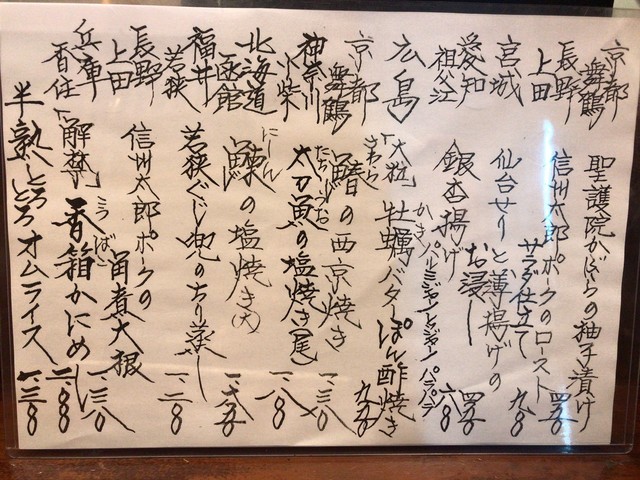 京都 舞鶴 聖護院かぶらの柚子漬け 四五〇
長野 上田 信州太郎ポークのロースト サラダ仕立て 九八〇
宮城 仙台せりと薄揚げのお浸し 四五〇
愛知 祖父江 銀杏揚げ パルミジャーノレジャーノパラパラ 六八〇
広島 大粒 牡蠣バターぽん酢焼き 九八〇
かき
京都 舞鶴 鰆の西京焼き 一、三八〇
さわら
神奈川 小柴 太刀魚の塩焼き(尾) 一、八八〇
たちうお
北海道 函館 鰊の塩焼き(大)
にしん
福井 若狭 若狭ぐじ兜のちり蒸し 一、二八〇
長野 上田 信州太郎ポークの角煮大根 一、三八〇
兵庫 香住 「解禁」香箱かにめし 二、八〇〇
こうばこ
半熟とろとろオムライス 一、三八〇